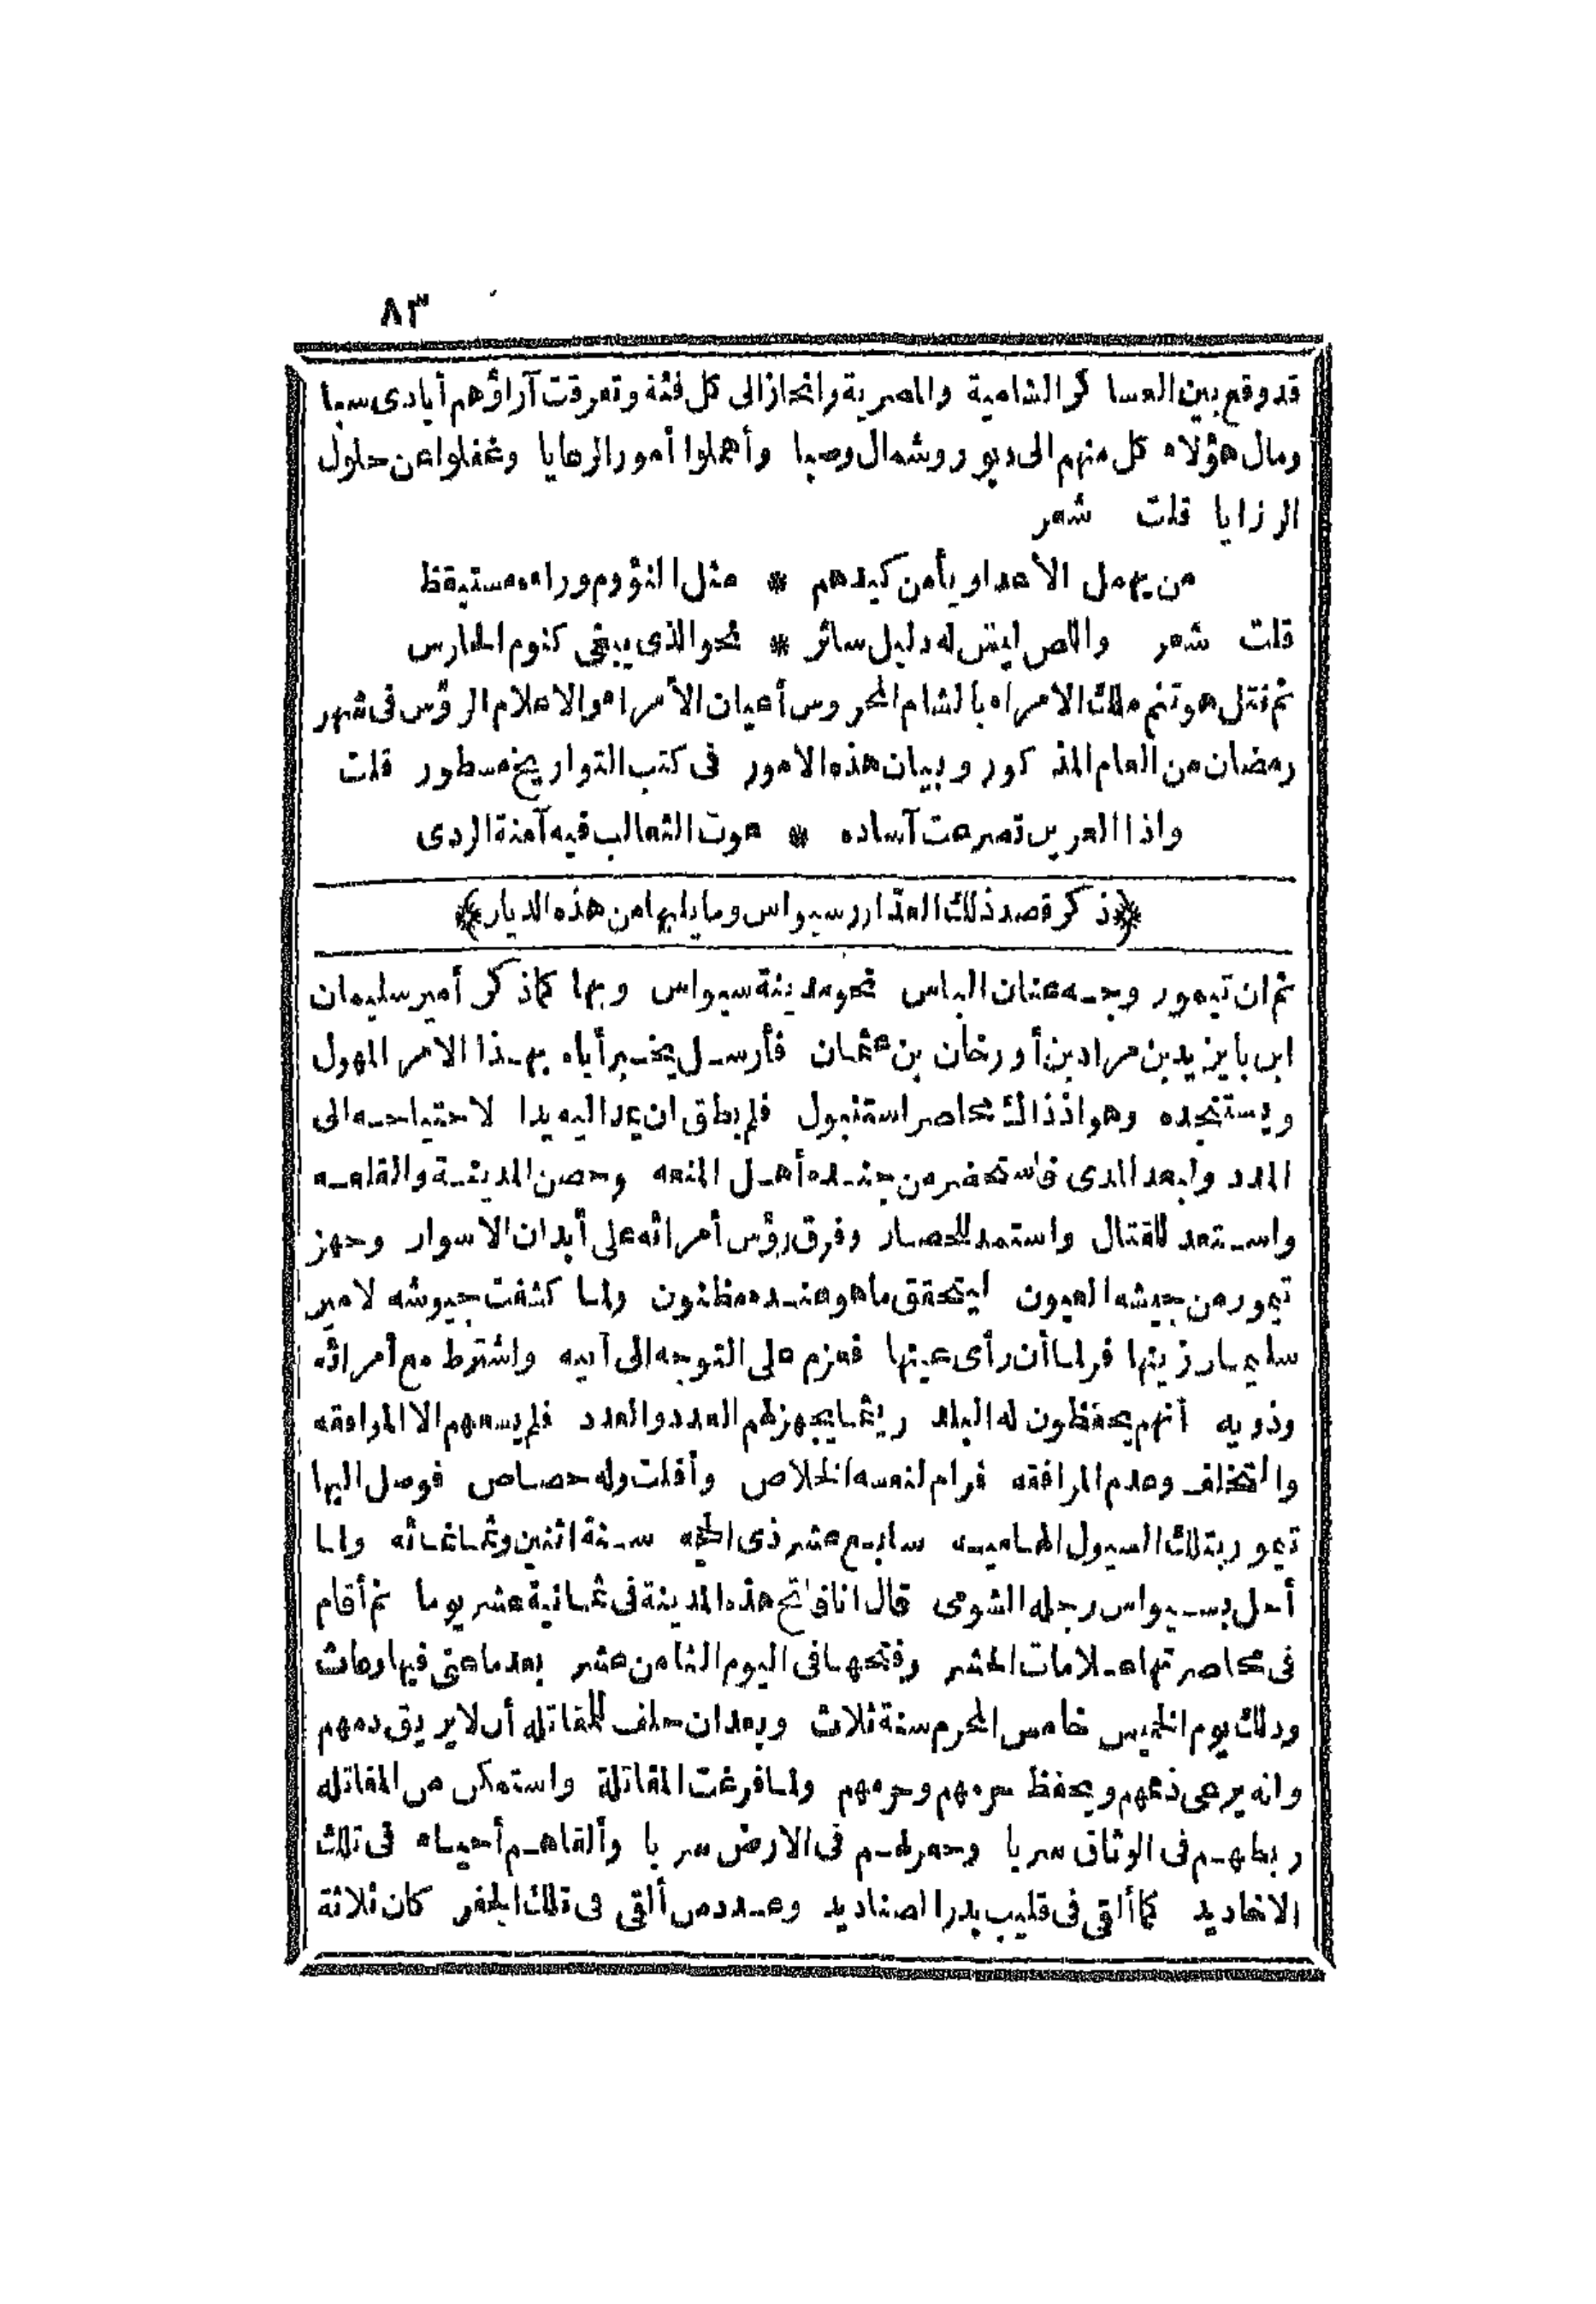 ٨٣
قد وقع بين العساكر الشامية والمصرية وانحاز الى كل فئة وتفرقت آراؤهم أيادى سبا
ومال هؤلاء كل منهم الى دبور وشمال وصبا وأهملوا أمور الرعايا وغفلوا عن حلول
الرزايا قلت شعر
من يهمل الأعدا ويأمن كيدهم * مثل النؤوم وراءه مستيقظ
قلت شعر واللص ليس له دليل سائر * نحو الذى يبغى كنوم الحارس
ثم قتل هو وتنم ملك الامراء بالشام المحروس أعيان الأمراء والاعلام الرؤس فى شهر
رمضان من العام المذكور وبيان هذه الامور فى كتب التواريخ مسطور قلت
واذا العرين تصرعت آساده * عوت الثعالب فيه آمنة الردى
﴿ذكر قصد ذلك الغدّار سيواس وما يليها من هذه الديار﴾
ثم ان تيمور وجه عنان الباس نحو مدينة سيواس وبها كما ذكر أمير سليمان
ابن بايزيد بن مراد بن أورخان بن عثمان فأرسل يخبر أباه بهذا الامر المهول
ويستنجده وهو اذ ذاك محاصر استنبول فلم يطق ان يمد اليه يدا لاحتياجه الى
المدد ولبعد المدى فاستحضر من جنده أهل المنعه وحصن المدينة والقلعه
واستعد للقتال واستمد للحصار وفرق رؤس أمرائه على أبدان الاسوار وجهز
تيمور من جيشه العيون ليتحقق ما هو عنده مظنون ولما كشفت جيوشه لامير
سليمان زينها فر لما أن رأى عينها فعزم على التوجه الى أبيه واشترط مع أمرائه
وذويه أنهم يحفظون له البلد ريثما يجهز لهم العدد والعدد فلم يسعهم الا الموافقه
والتخلف وعدم المرافقه فرام لنفسه الخلاص وأفلت وله حصاص فوصل اليها
تيمور بتلك السيول الهاميه سابع عشر ذى الحجه سنة اثنين وثمانمائه ولما
أحل بسيواس رجله الشومى قال انا فاتح هذه المدينة فى ثمانية عشر يوما ثم أقام
فى محاصرتها علامات الحشر وفتحها فى اليوم الثامن عشر بعد ما عتى فيها وعاث
وذلك يوم الخميس خامس المحرم سنة ثلاث وبعد ان حلف للمقاتله أن لا يريق دمهم
وانه يرعى ذممهم ويحفظ حرمهم وحرمهم ولما فرغت المقاتلة واستمكن من المقاتله
ربطهم فى الوثاق سربا وحفر لهم فى الارض سربا وألقاهم أحياء فى تلك
الاخاديد كما ألقى فى قليب بدر الصناديد وعدد من ألقى فى تلك الحفر كان ثلاثة